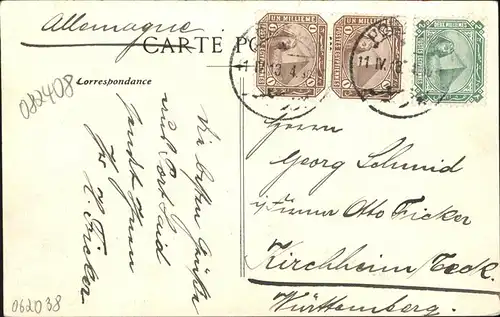 Allemagne.
CARTE PO
UN MILLIEME
UN MILLIEME
DEUX MILLIEMES
11 IV 13
11 IV 13
Correspondance
062408
Die besten Grüße
aus Port Said
sendet Ihnen
Ihr
H. Ficker
Herrn
Georg Schmid
Firma Otto Ficker
Kirchheim Teck.
Württemberg.
062038